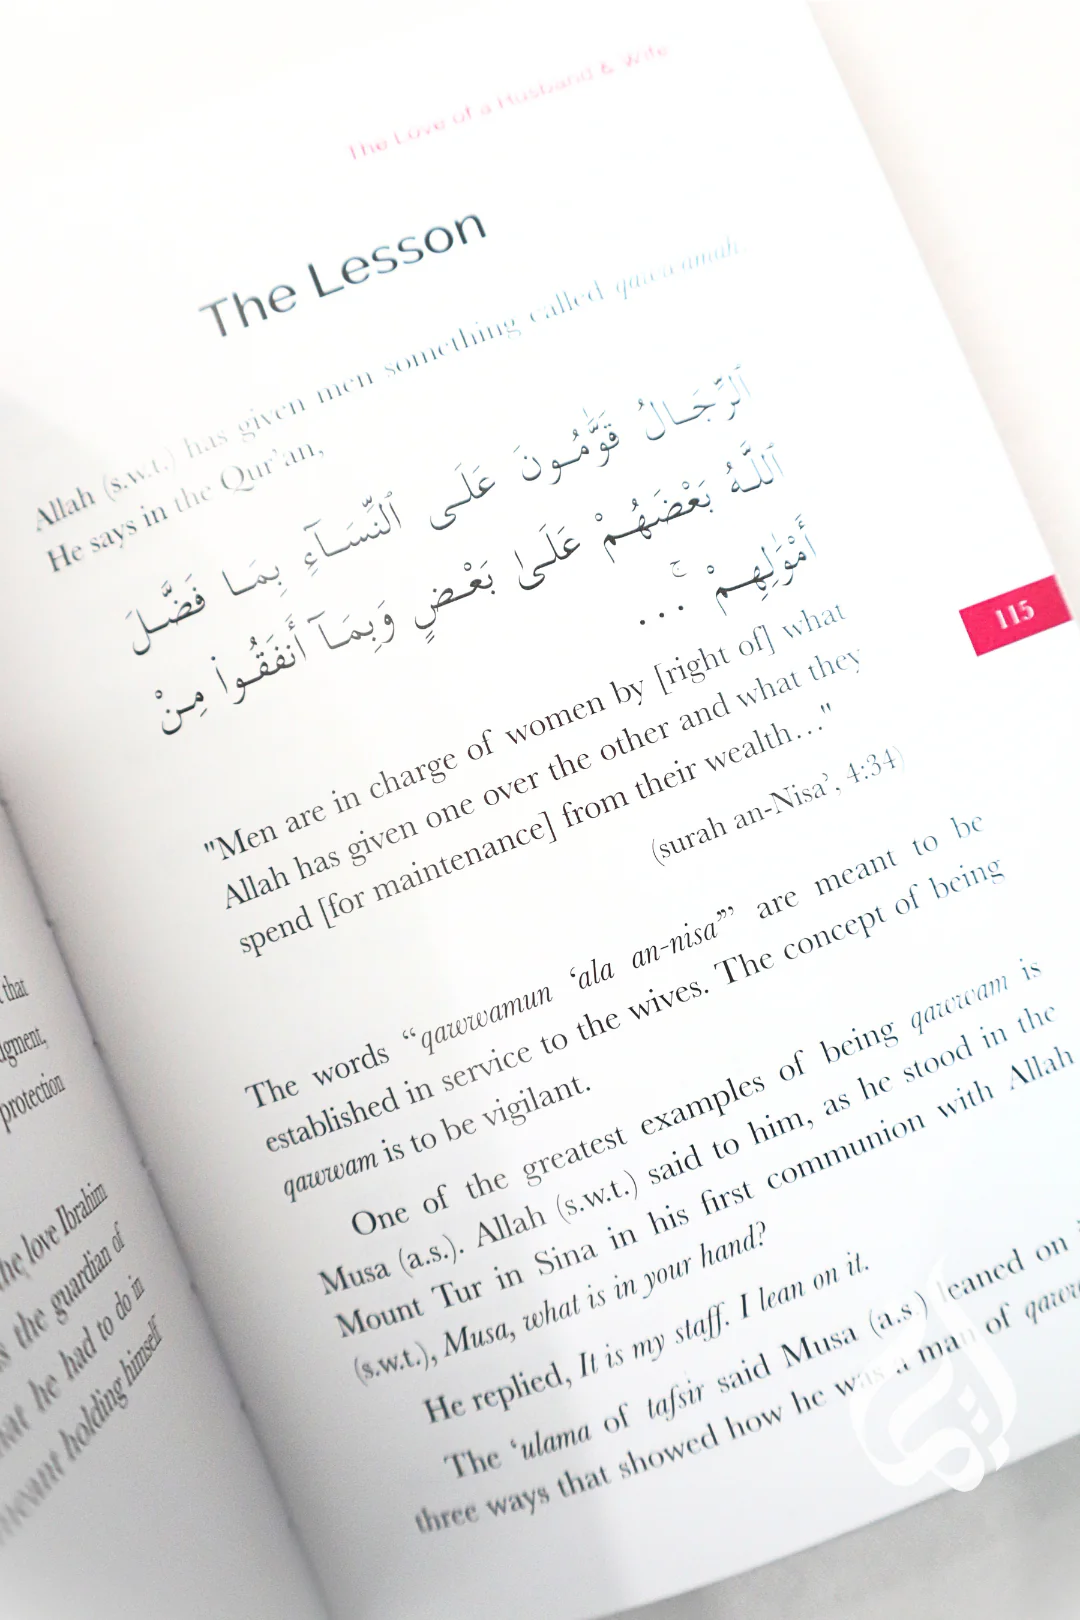 that
dgment,
protection
he love Ibrahim
s the guardian of
hat he had to do in
meant holding himself
The Love of a Husband & Wife
The Lesson
Allah (s.w.t.) has given men something called qawwamah.
He says in the Qur’an,
ٱلرِّجَالُ قَوَّٰمُونَ عَلَى ٱلنِّسَآءِ بِمَا فَضَّلَ
ٱللَّهُ بَعْضَهُمْ عَلَىٰ بَعْضٍ وَبِمَآ أَنفَقُوا۟ مِنْ
أَمْوَٰلِهِمْ ۚ ...
"Men are in charge of women by [right of] what
Allah has given one over the other and what they
spend [for maintenance] from their wealth..."
(surah an-Nisa’, 4:34)
115
The words “qawwamun ‘ala an-nisa’” are meant to be
established in service to the wives. The concept of being
qawwam is to be vigilant.
One of the greatest examples of being qawwam is
Musa (a.s.). Allah (s.w.t.) said to him, as he stood in the
Mount Tur in Sina in his first communion with Allah
(s.w.t.), Musa, what is in your hand?
He replied, It is my staff. I lean on it.
The ‘ulama of tafsir said Musa (a.s.) leaned on
three ways that showed how he was a man of qaww